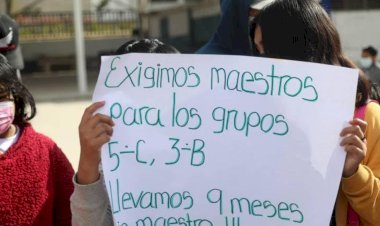 Exigimos maestros
para los grupos
5÷C, 3÷B
Llevamos 9 meses
maestro !!!